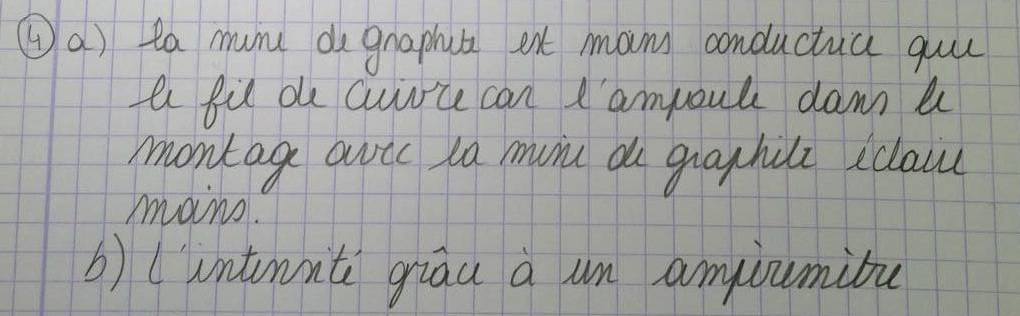 4 a) la mine de graphite est moins conductrice que
le fil de cuivre car l'ampoule dans le
montage avec la mine de graphite éclaire
moins.
b) L'intensité grâce à un ampèremètre